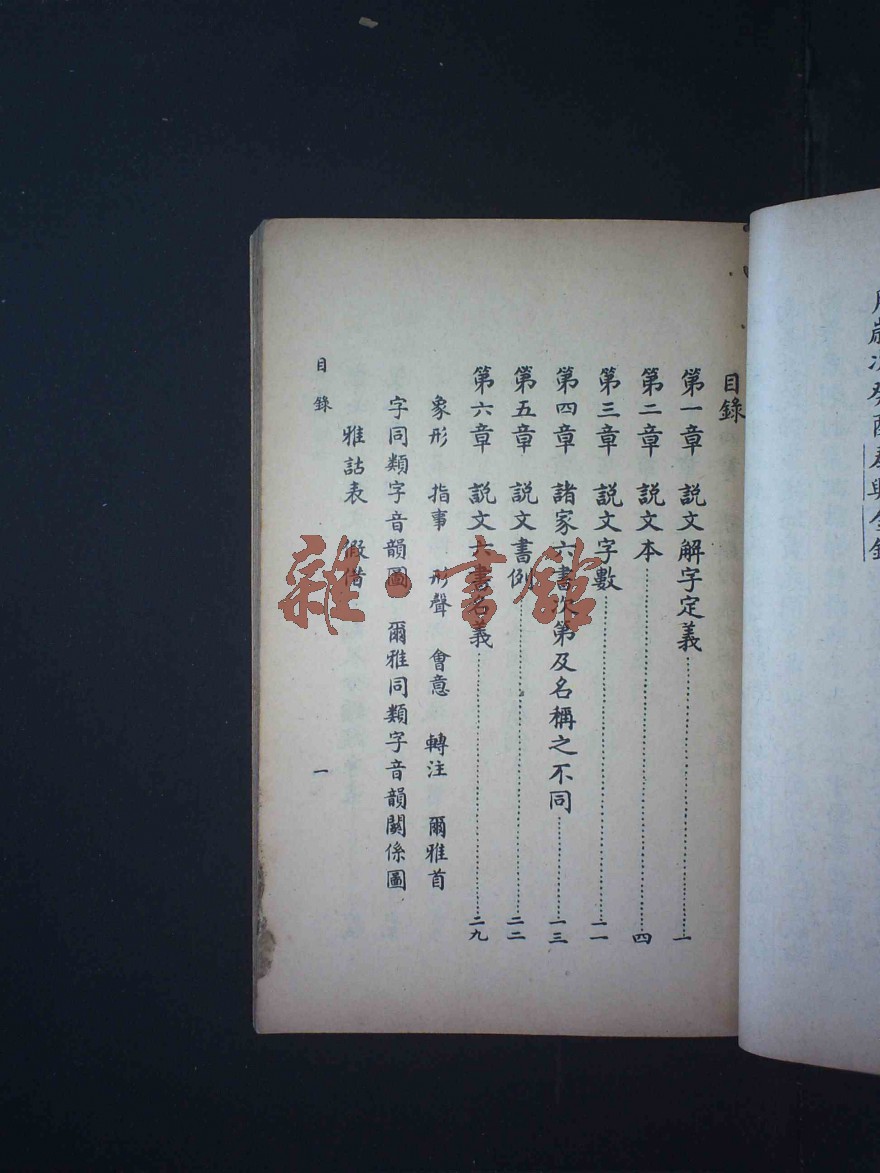 目錄
第一章 説文解字定義 一
第二章 説文本 四
第三章 説文字數 一一
第四章 諸家六書次第及名稱之不同 一三
第五章 説文書例 二二
第六章 説文六書名義 二九
象形 指事 形聲 會意 轉注 爾雅首
字同類字音韻圖 爾雅同類字音韻關係圖
雅詁表 假借
目錄 一
雜·書館